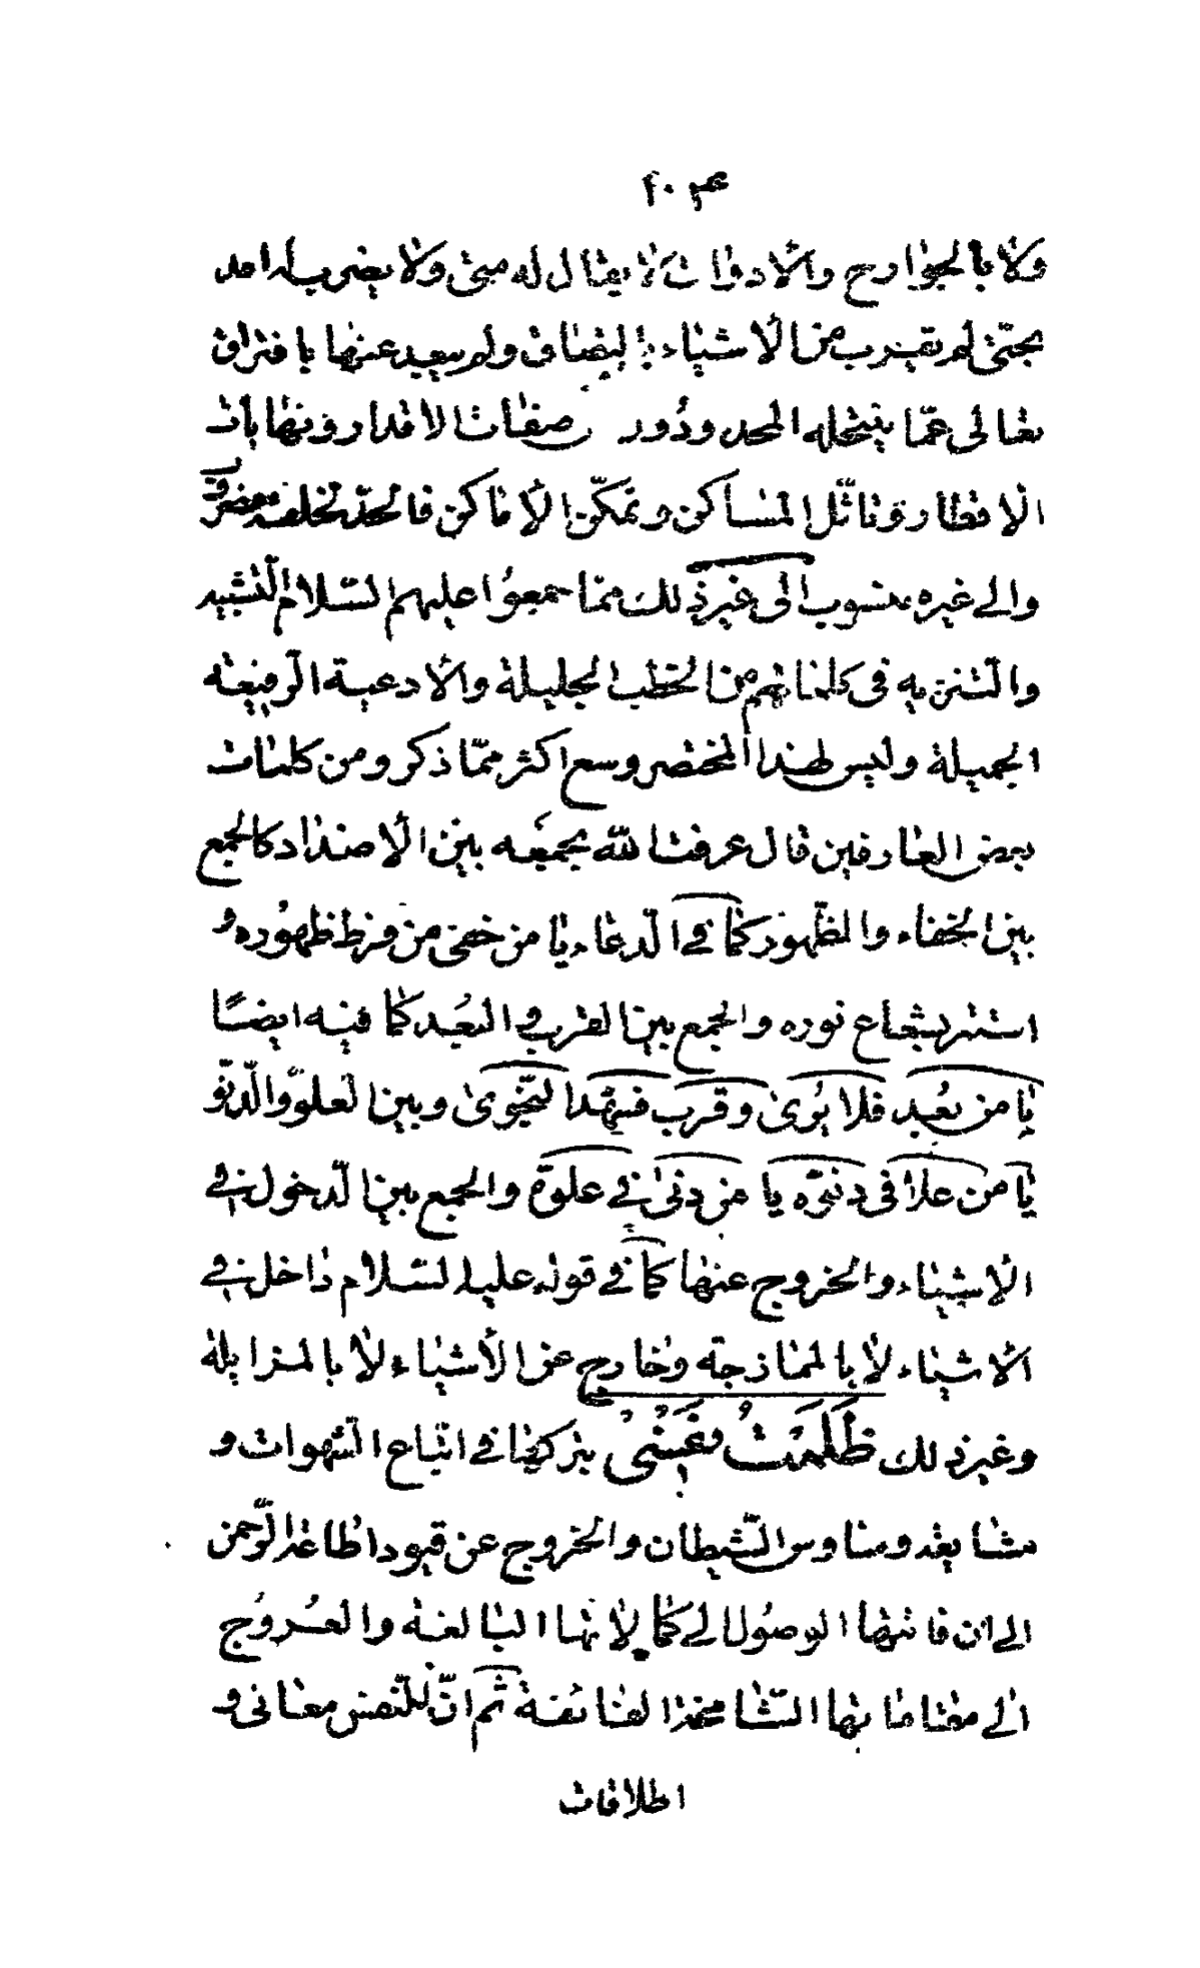 ٢٠٣
ولا بالجوارح والادوات لا يقال له متى ولا يضرب له امد
بحتى لم يقرب من الأشياء بالتصاق ولم يبعد عنها بافتراق
تعالى عمّا ينتحله المحدودون صفات الاقدار ونهايات
الاقطار وتاثّل المساكن وتمكّن الأماكن فالحدّ لخلقه مضروب
والى غيره منسوب الى غير ذلك ممّا جمعوا عليهم السّلام التشبيه
والتّنزيه فى كلماتهم من الخطب الجليلة والأدعية الرّفيعة
الجميلة وليس لهذا المختصر وسع اكثر ممّا ذكر ومن كلمات
بعض العارفين قال عرفت الله بجمعه بين الأضداد كالجمع
بين الخفاء والظّهور كما في الدّعاء يا من خفى من فرط ظهوره و
استتر بشعاع نوره والجمع بين القرب والبُعد كما فيه ايضًا
يا من بعُد فلا يُرى وقرب فشهد النّجوى وبين العلوّ والدّنوّ
يا من علا فى دنوّه يا من دنى في علوّه والجمع بين الدّخول في
الأشياء والخروج عنها كما في قوله عليه السّلام داخل في
الأشياء لا بالممازجة وخارج عن الأشياء لا بالمزايلة
وغير ذلك ظَلَمْتُ نَفْسِى بتركها في اتّباع الشّهوات و
متابعة وساوس الشّيطان والخروج عن قيود اطاعة الرّحمن
الى ان فاتها الوصول الى كمالاتها البالغة والعُروُج
الى مقاماتها الشّامخة الفائقة ثم انّ للنّفس معانى و
اطلاقات